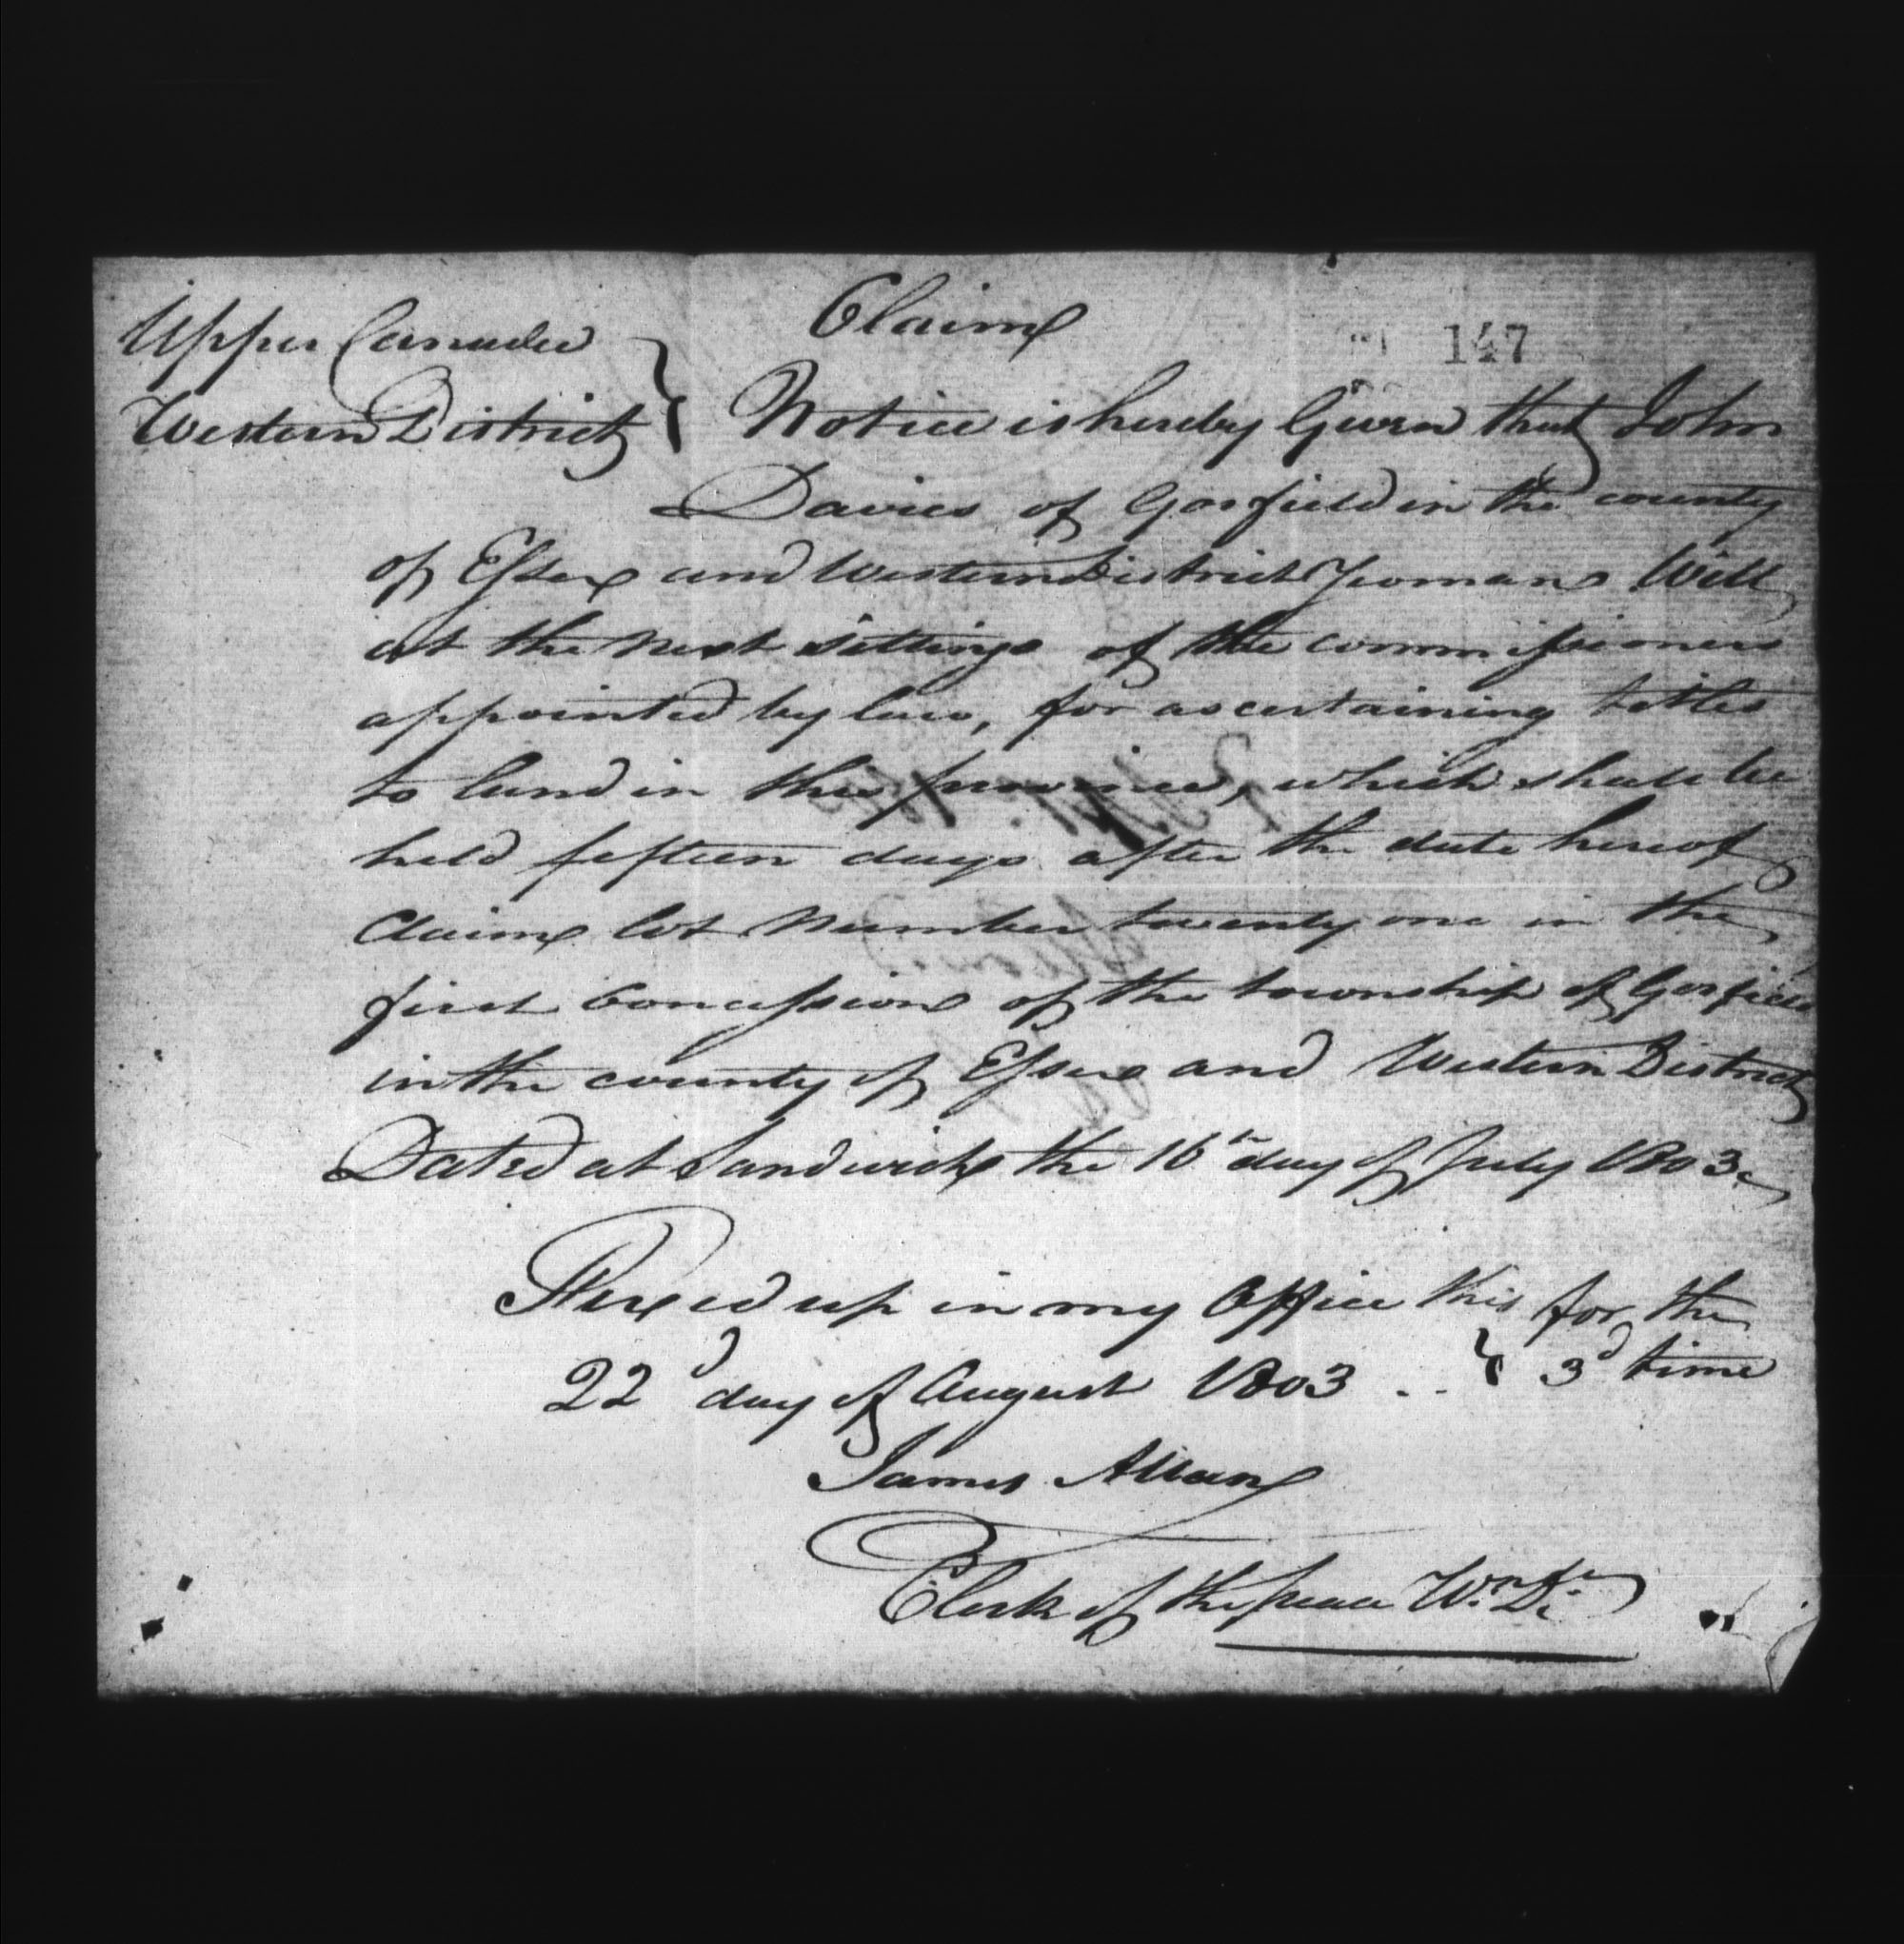 Claim
147
Upper Canada
Western District } Notice is hereby Given that John
Davies of Gosfield in the county
of Essex and Western District Yeoman Will
at the next sittings of the commissioners
appointed by law, for ascertaining titles
to land in this province, which shall be
held fifteen days after the date hereof
Claim lot Number twenty one in the
first Concession of the township of Gosfield
in the county of Essex and Western District
Dated at Sandwich the 16th day of July 1803
Fixed up in my Office this for the
22d day of August 1803 .. } 3d time
James Allan
Clerk of the peace Wn Dt